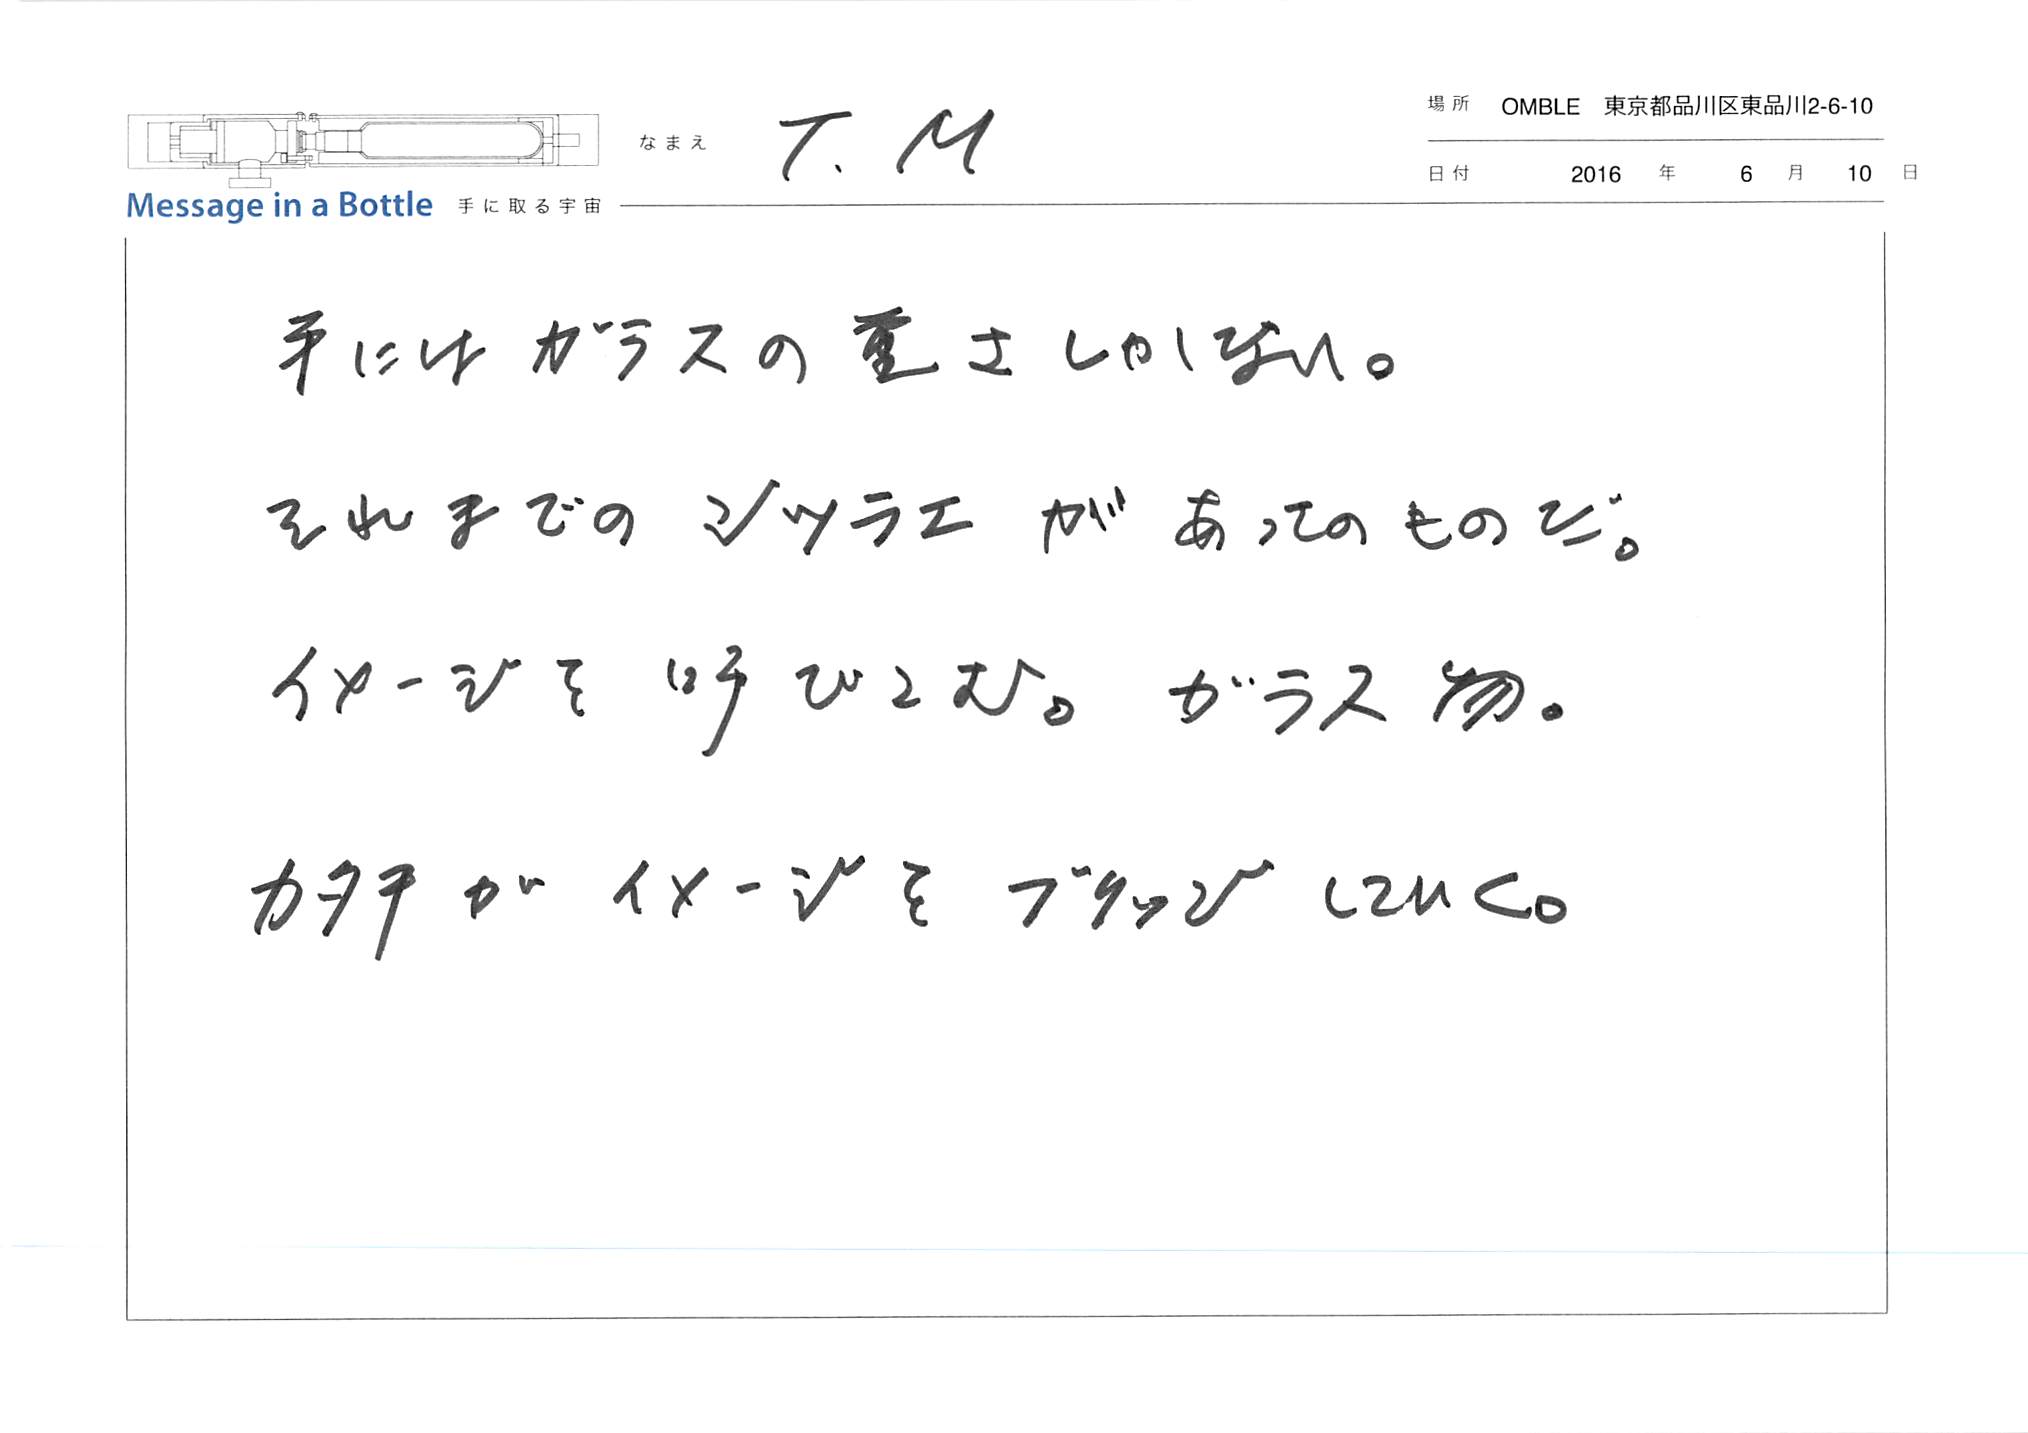 場所 OMBLE 東京都品川区東品川2-6-10
なまえ T. M
日付 2016 年 6 月 10 日
Message in a Bottle 手に取る宇宙
手にはガラスの重さしかない。
それまでのシツラエがあってのものだ。
イメージを呼びこむ。ガラス物。
カタチがイメージをブリッジしていく。